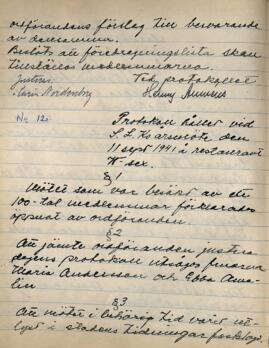 ordförandens förslag till besvarande
av densamma.
Beslöts att föredragningslista skall
tillställas medlemmarna.
Justeras: Vid protokollet
Maria Nordenborg Henny
No 12. Protokoll hållet vid
årsmöte den
11 sept 1941 å restaurant
W-sex.
§1
Mötet som var besökt av ett
100-tal medlemmar förklarades
öppnat av ordföranden.
§2
Att jämte ordföranden justera
dagens protokoll utsågs fruarna
Maria Andersson och Ebba Ama-
lin
§3
Att mötet i behörig tid varit ut-
lyst i stadens tidningar